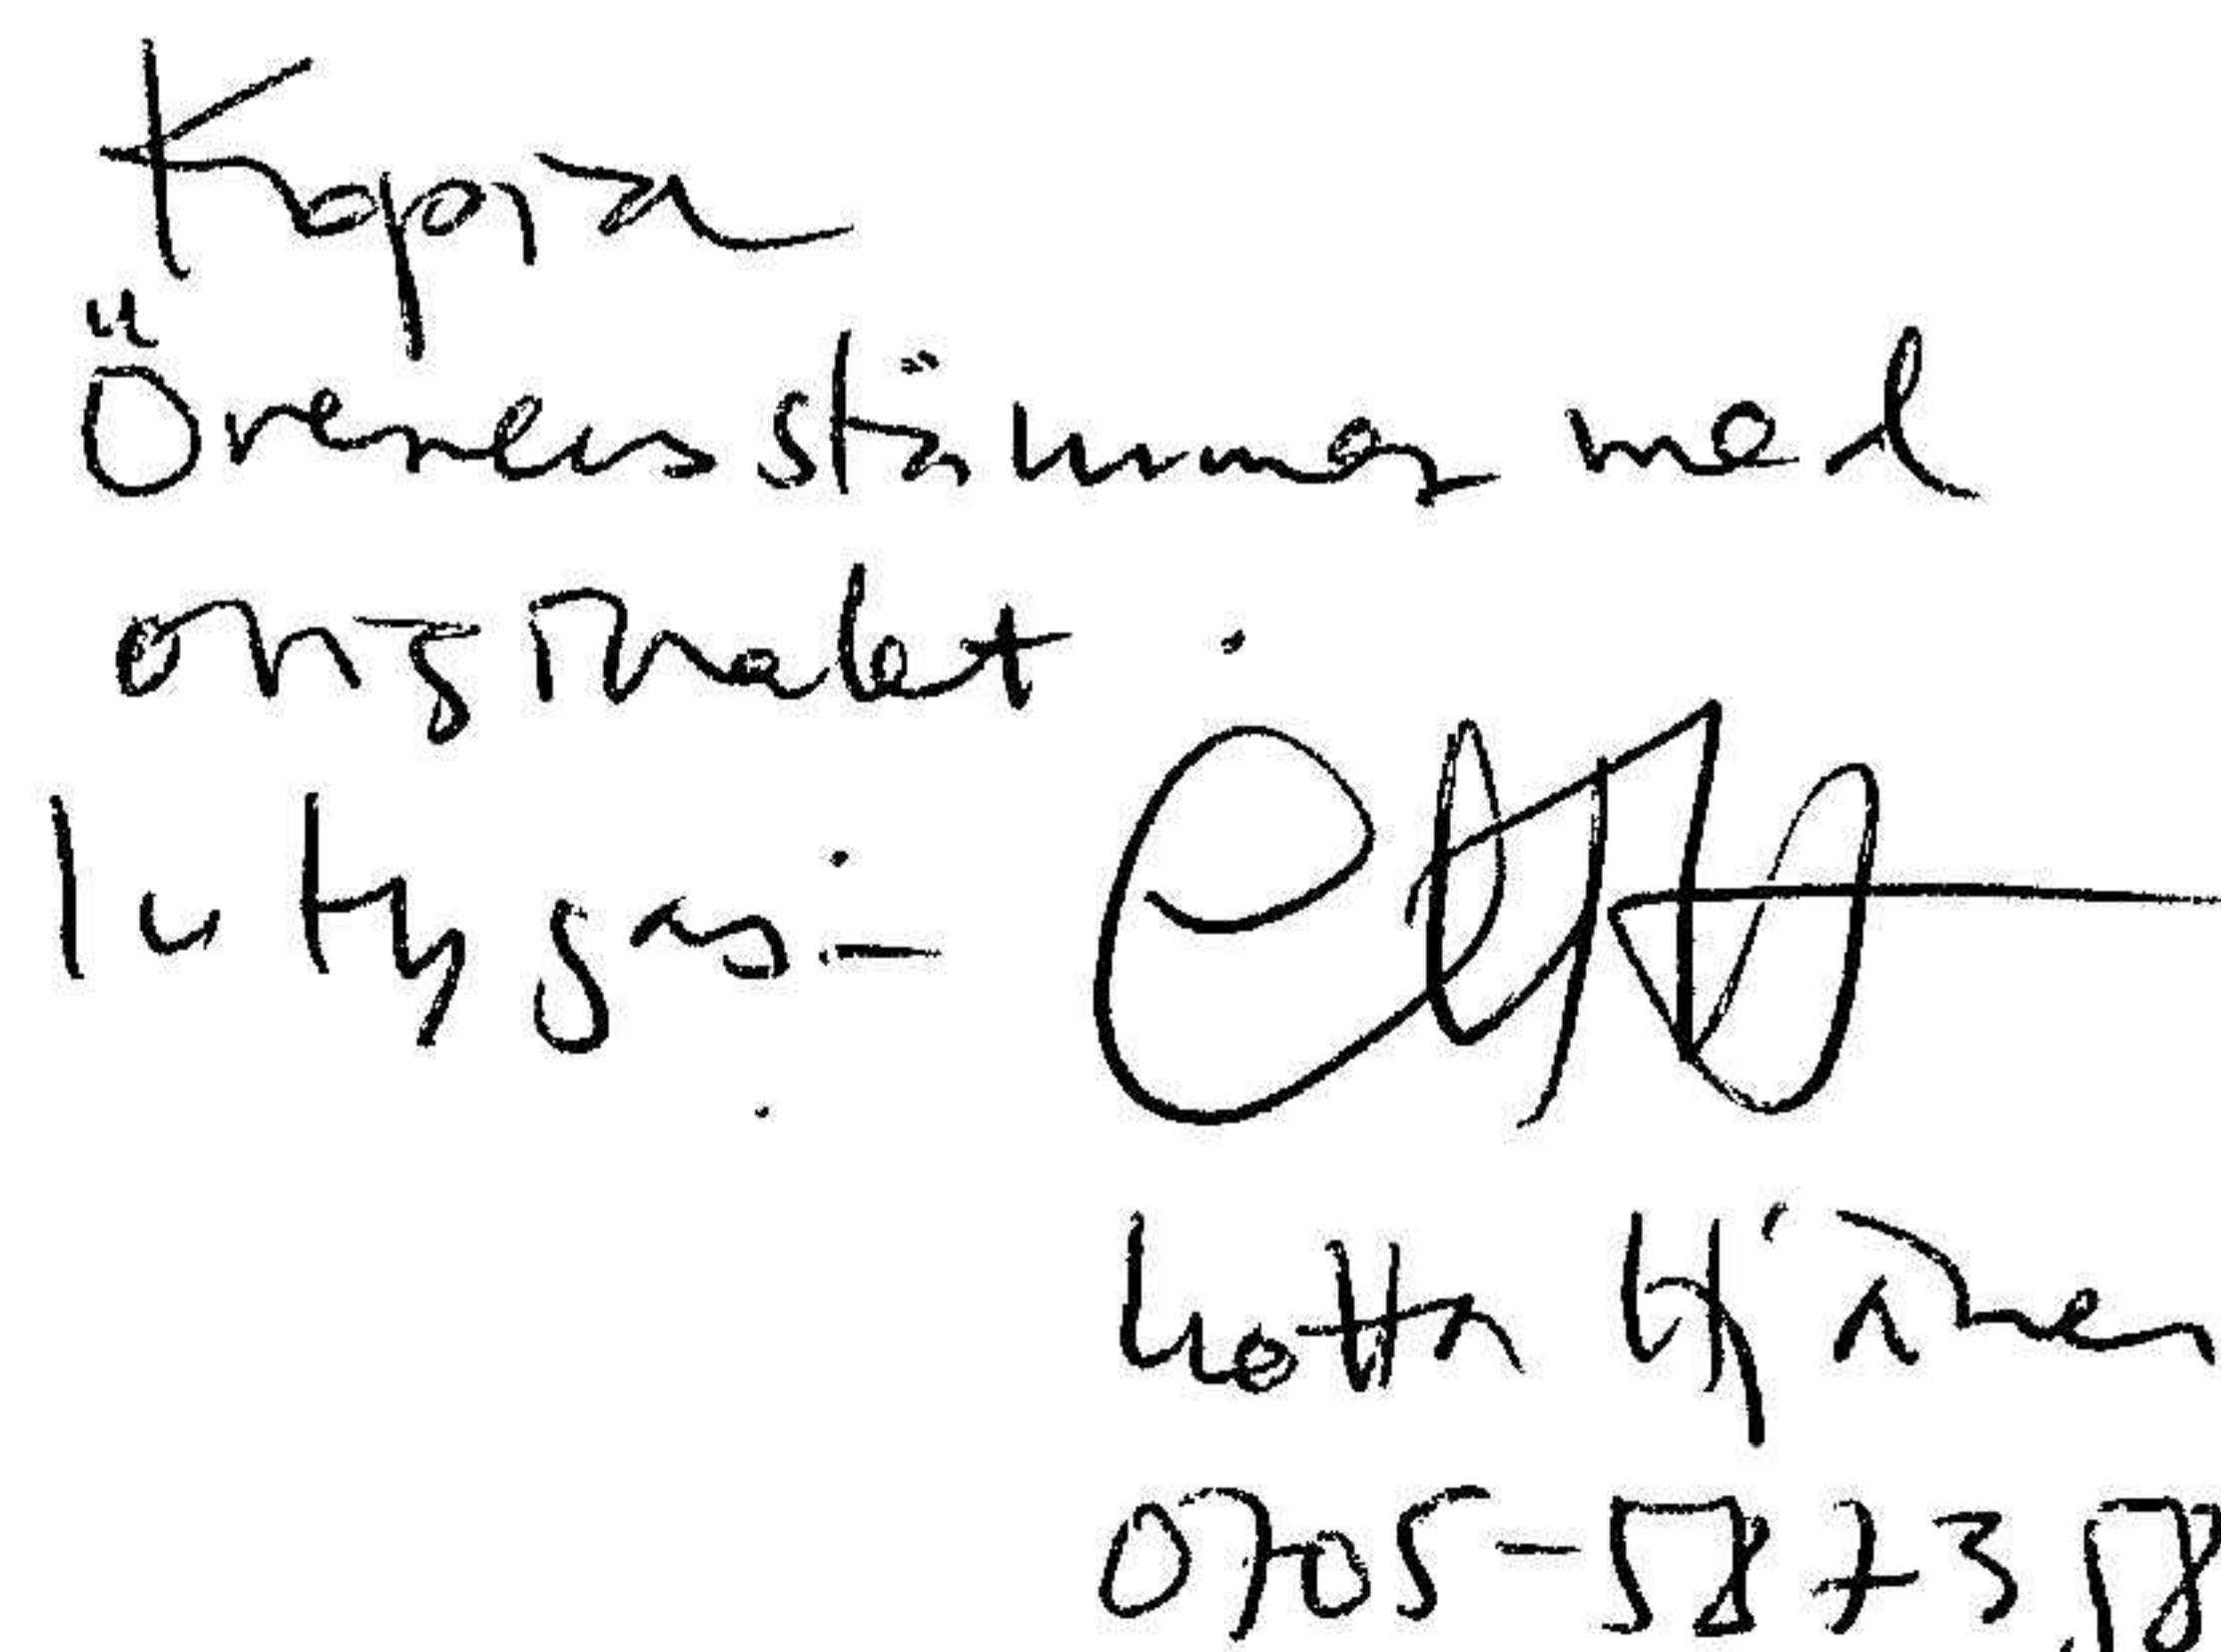 Kopia
Överensstämmer med
originalet.
Intygas:-
Lotta
0705-58 73 58